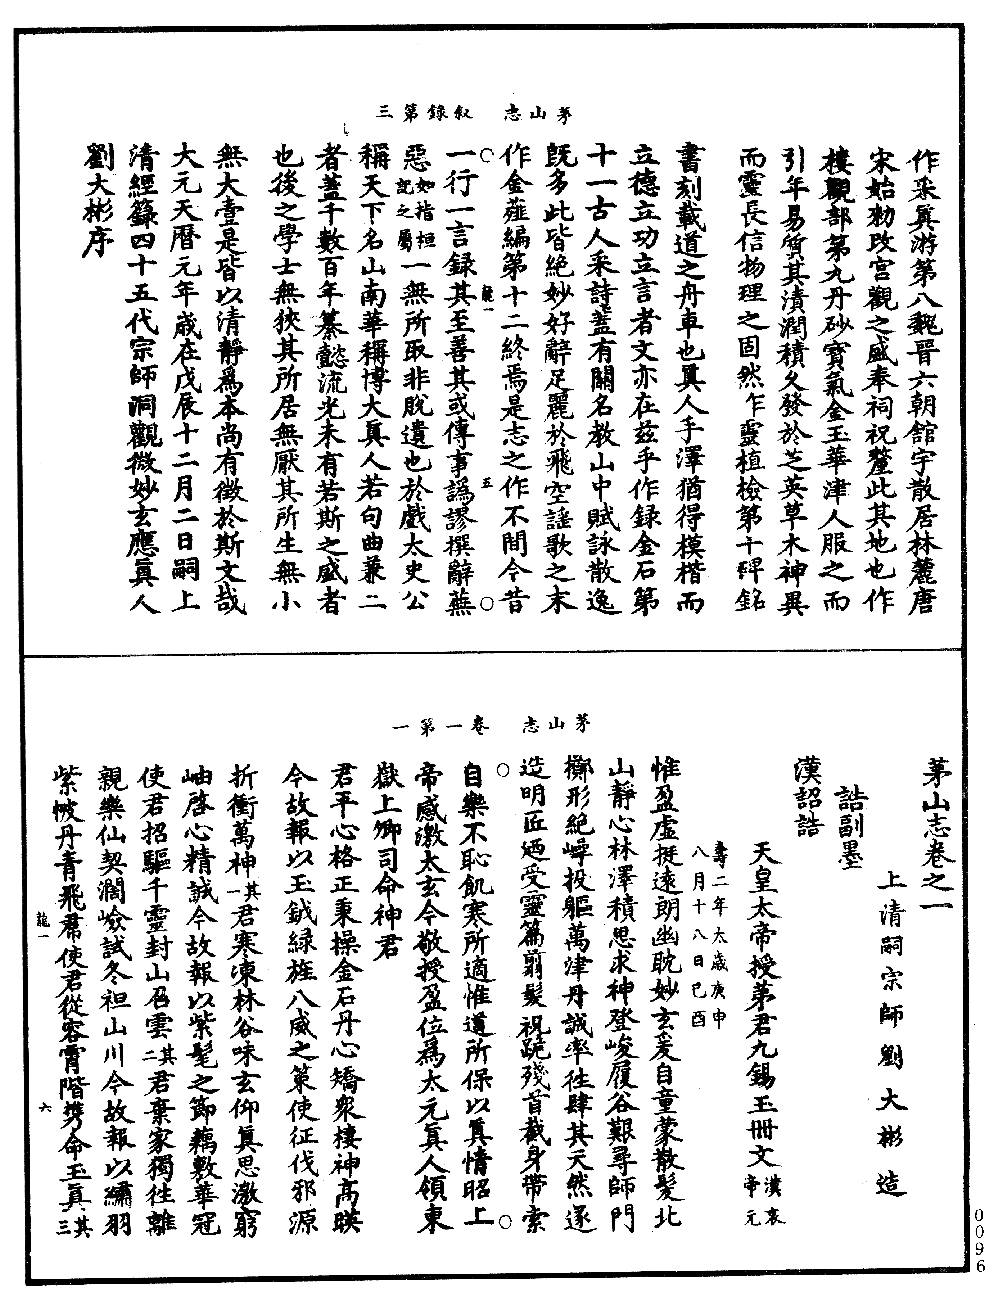 茅山志　叙錄第三
作采真游第八魏晉六朝館宇散居林麓唐
宋始勅改宮觀之盛奉祠祝釐此其地也作
樓觀部第九丹砂寶氣金玉華津人服之而
引年易質其漬潤積久發於芝英草木神異
而靈長信物理之固然乍靈植檢第十碑銘
書刻載道之舟車也真人手澤猶得模楷而
立德立功立言者文亦在茲乎作録金石第
十一古人采詩蓋有關名教山中賦詠散逸
既多此皆絕妙好辭足麗於飛空謡歌之末
作金薤編第十二終焉是志之作不間今昔
龍一　五
一行一言録其至善其或傳事譌謬撰辭蕪
惡如指桓記之屬一無所取非脫遺也於戲太史公
稱天下名山南華稱博大真人若句曲兼二
者蓋千數百年纂懿流光未有若斯之盛者
也後之學士無狹其所居無厭其所生無小
無大壹是皆以清靜爲本尚有徵於斯文哉
大元天曆元年歲在戊辰十二月二日嗣上
清經籙四十五代宗師洞觀微妙玄應真人
劉大彬序
茅山志　卷一第一
茅山志卷之一
上清嗣宗師劉大彬造
誥副墨
漢詔誥
天皇太帝授茅君九錫玉冊文漢哀帝元
壽二年太歲庚申
八月十八日己酉
惟盈虛挺遠朗幽耽妙玄爰自童蒙散髮北
山靜心林澤積思求神登峻履谷艱尋師門
擲形絕崿投軀萬津丹誠率往肆其天然遂
造明匠迺受靈篇剪髮祝跪殘首截身帶索
自樂不恥飢寒所適惟道所保以真情昭上
帝感激太玄今敬授盈位爲太元真人領東
嶽上卿司命神君
君平心格正秉操金石丹心矯衆棲神高暎
今故報以玉鉞緑旌八威之策使征伐邪源
折衝萬神其一君寒凍林谷味玄仰真思激窮
岫啓心精誠今故報以紫髦之節藕敷華冠
使君招驅千靈封山召雲其二君棄家獨往離
親樂仙契濶嶮試冬袒山川今故報以繡羽
紫帔丹青飛帬使君從容霄階携命玉真其三
龍一　六
0096